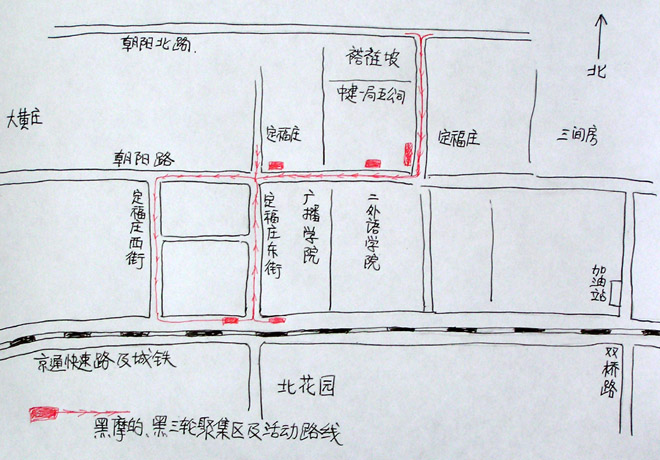 朝阳北路
褡裢坡
北
中建一局五公司
大黄庄
定福庄
定福庄
三间房
朝阳路
定福庄西街
定福庄东街
广播学院
二外语学院
加油站
京通快速路及城铁
双桥路
北花园
黑摩的、黑三轮聚集区及活动路线